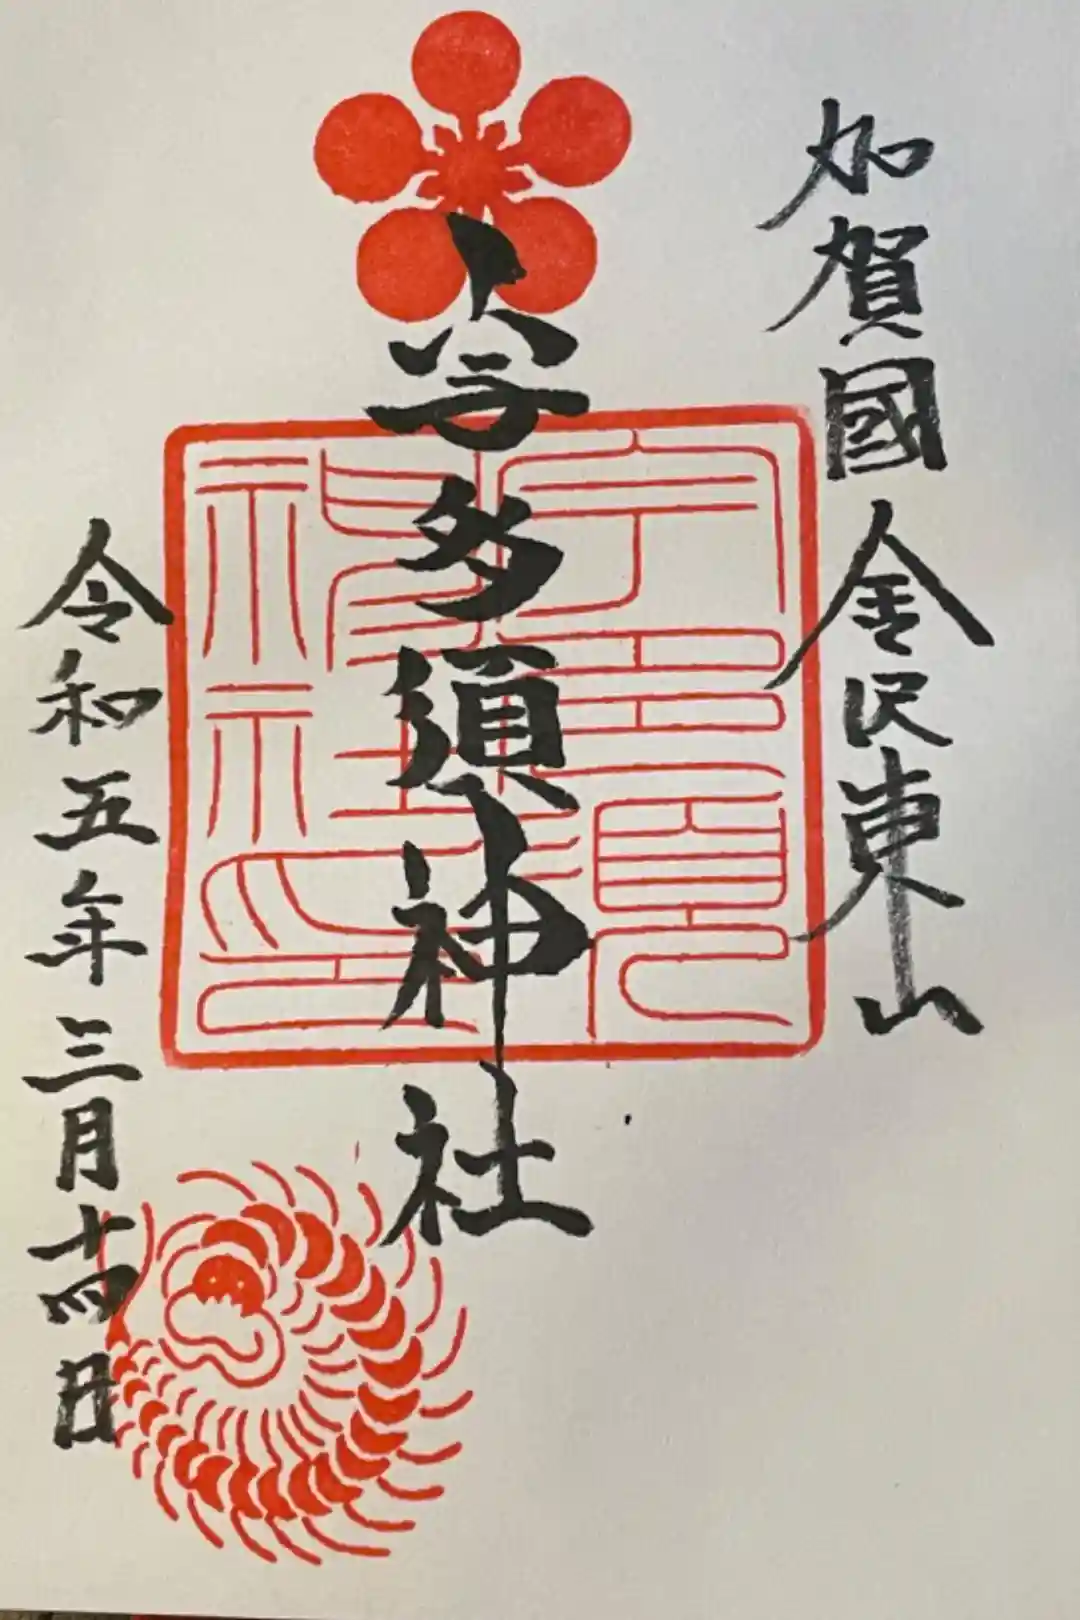 加賀國金沢東山
宇多須神社
令和五年三月十四日
宇多須神社印